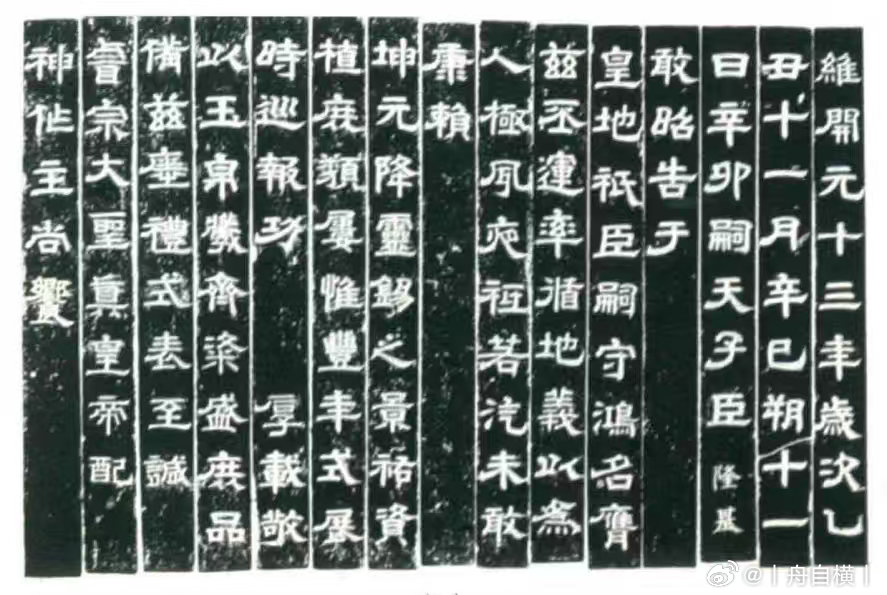 維開元十三年歲次乙
丑十一月辛巳朔十一
日辛卯嗣天子臣隆基
敢昭告于
皇地祇臣嗣守鴻名膺
茲丕運率循地義以為
人極夙夜祗若汔未敢
康賴
坤元降靈錫之景祐資
植庶類屢惟豐年式展
時巡報功 厚載敬
以玉帛犧齊粢盛庶品
備茲瘞禮式表至誠
睿宗大聖真皇帝配
神作主尚饗
@丨舟自横丨